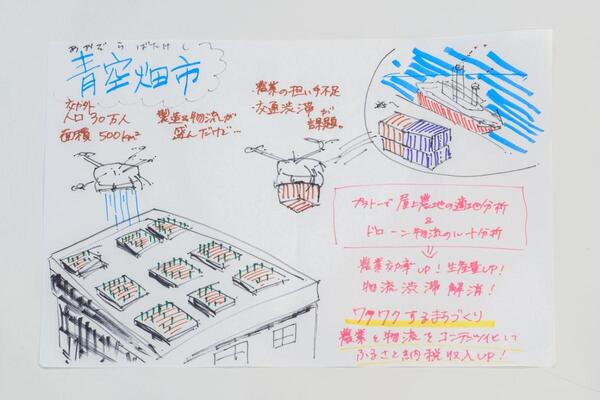 あおぞらばたけし
青空畑市
郊外
人口 30万人
面積 500km²
製造も物流も
盛んだけど…
・農業の担い手不足
・交通渋滞が
課題。
プラトーで屋上農地の適地分析
&
ドローン物流のルート分析
農業効率UP! 生産量UP!
物流渋滞解消!
ワクワクするまちづくり
農業と物流をコンテンツ化して
ふるさと納税収入UP!